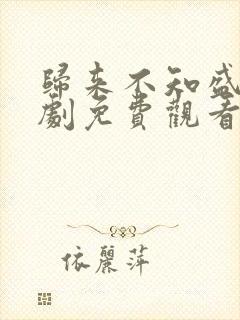 歸来不知盛
劇免費觀看
依麗萍